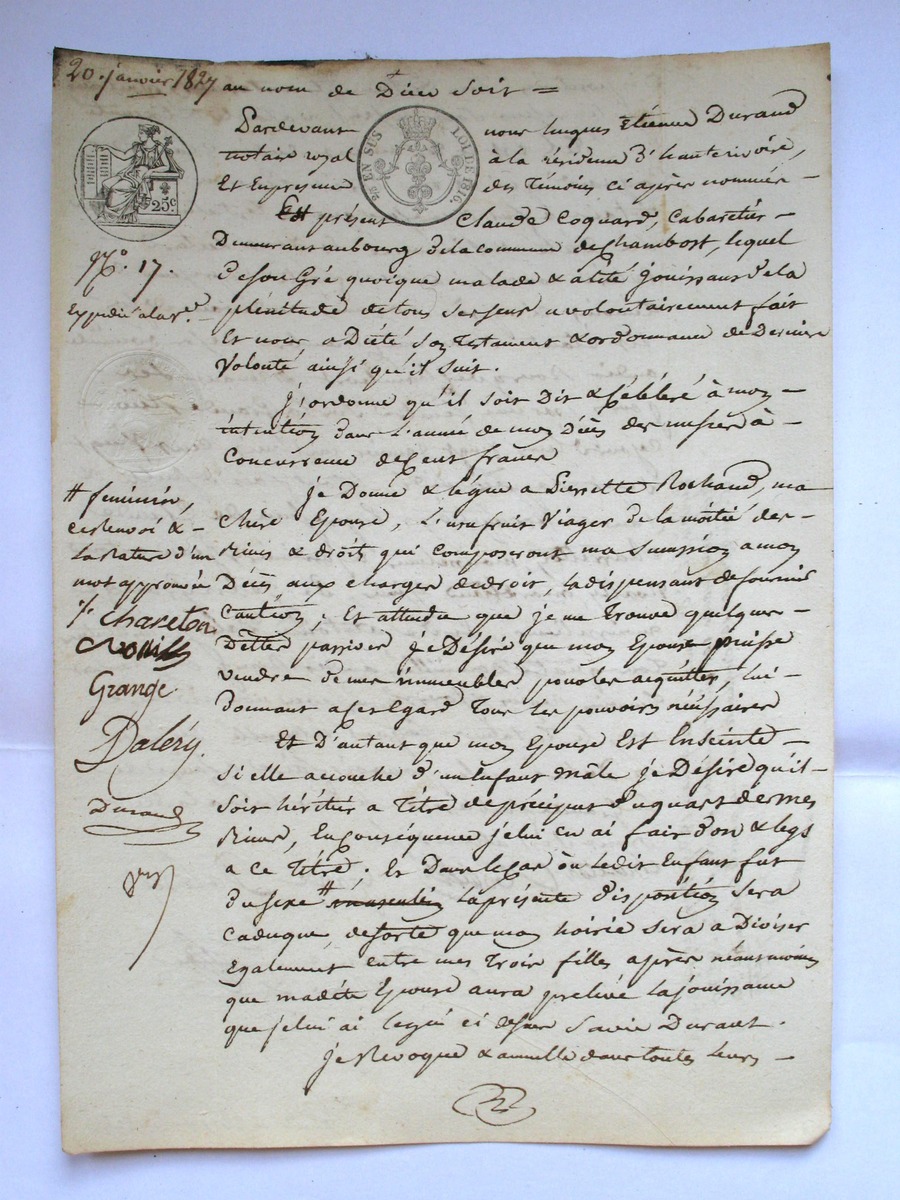 20. janvier 1827
au nom de Dieu soit =
Pardevant nous hugues Étienne Durand
notaire royal à la résidence d'hauterivoire,
Et En présence des Témoins ci après nommés -
2/10 EN SUS LOI DE 1816.
25c
Est présent Claude Coquard, Cabaretier -
Demeurant au bourg de la commune de Chambost, lequel
N.o 17.
de son Gré quoique malade & alité jouissant de la
Expédié a la
plénitude de tous ses sens a volontairement fait
Et nous a Dicté son Testament & ordonnance de Derniere
Volonté ainsi qu'il suit.
J'ordonne qu'il soit Dit & Célébré à mon -
intention dans L'année de mon Décès des messes à -
Concurrence de Cent francs
je Donne & legue a Pierrette Rochand, ma
chère Epouse, L'usufruit Viager de la moitié des -
Biens & droits qui composeront ma Succession a mon
Décès, aux charges de droit, la dispensant de fournir
Caution; Et attendu que je me Trouve quelques -
Dettes passives je Désire que mon Epouse puisse
vendre de mes immeubles pour les acquitter, lui -
donnant a cet Egard Tous les pouvoirs nécessaires
Et D'autant que mon Epouse Est Enceinte -
Si elle accouche d'un Enfant mâle je Désire qu'il -
soit héritier a Titre de préciput d'un quart de mes
Biens, En Conséquence je lui en ai fait don & legs
a ce Titre; Et Dans le Cas où ledit Enfant fut
du sexe # masculin la présente disposition sera
Caduque, de sorte que mon hoirie sera a Diviser
Egalement entre mes Trois filles après néantmoins
que madite Epouse aura prélevé la jouissance
que je lui ai légué ci dessus sa vie Durant.
je Revoque & annulle dans toutes leurs -
# feminin,
ce Renvoi & -
la Rature d'un
mot approuvés
Chareton
Grange
Daléry
Durand